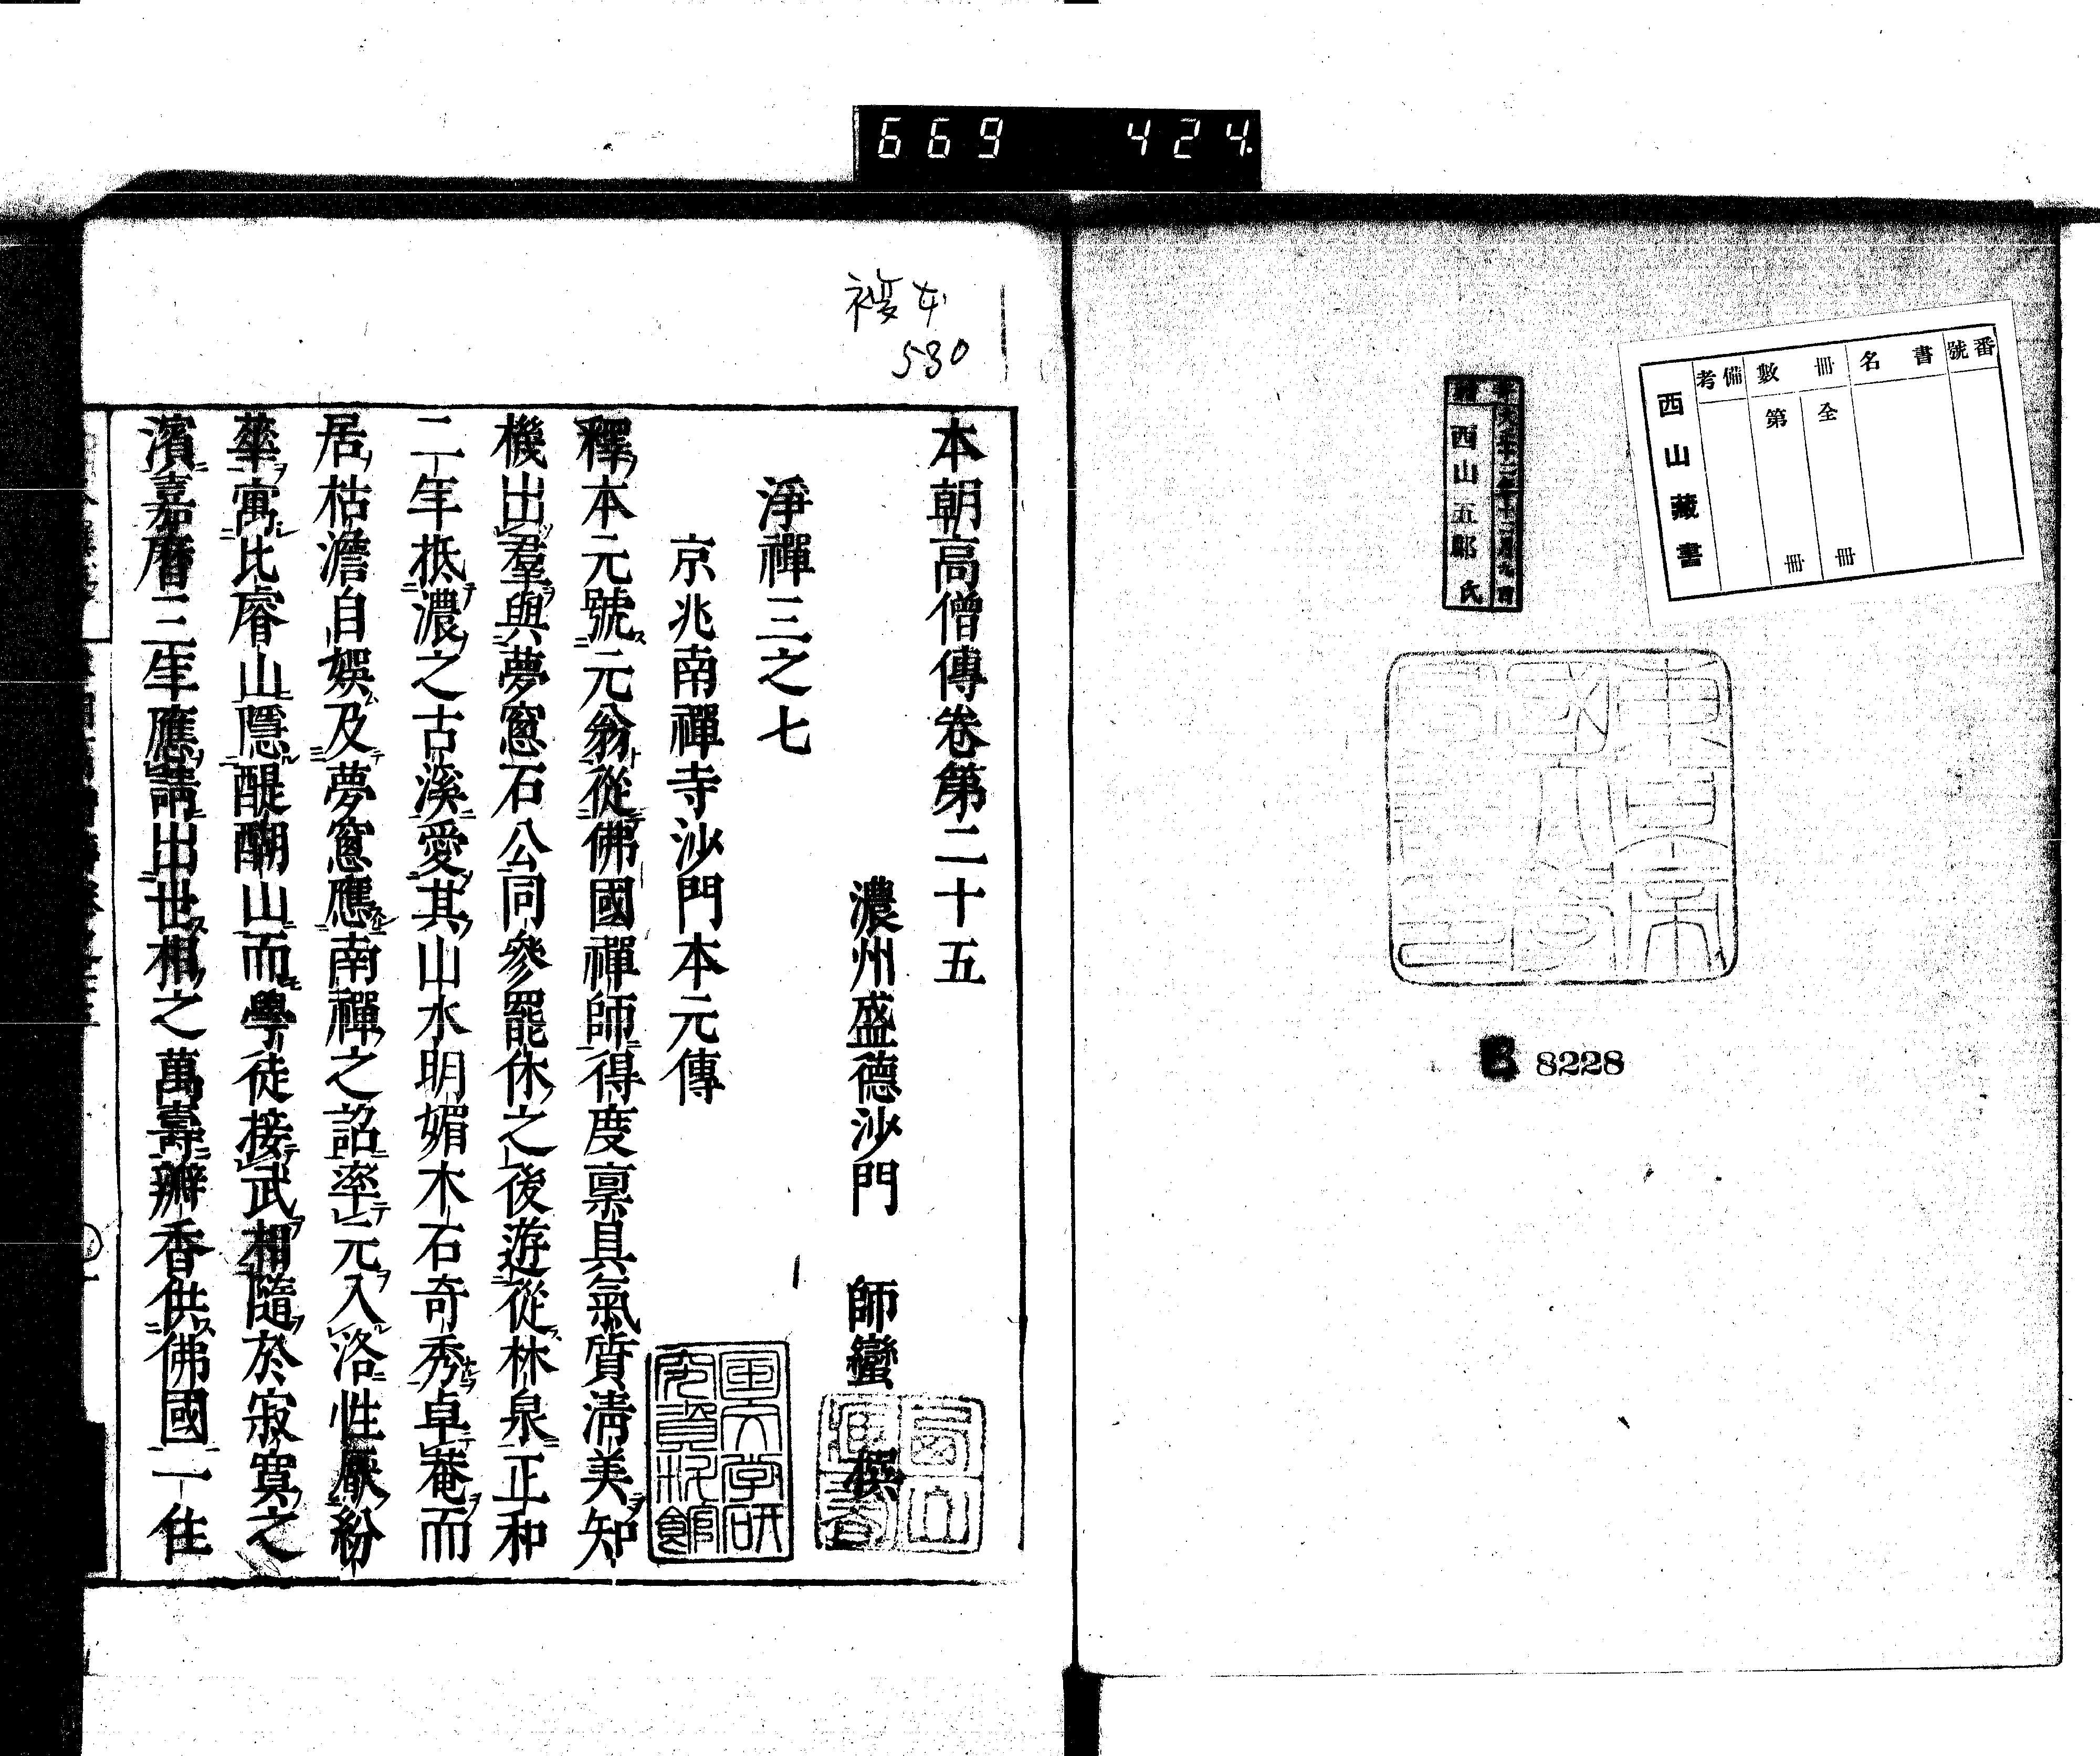 669 424.
番號
書名
冊數
全 冊
第 冊
備考
西山藏書
大正十二年十二月九日
西山五郎氏
8228
複本
530
本朝高僧傳卷第二十五
濃州盛德沙門 師蠻 撰
淨禪三之七
京兆南禪寺沙門本元傳
釋本元號元翁從佛國禪師得度稟具氣質清美知
機出羣與夢窓石公同參罷休之後遊從林泉正和
二年抵濃之古溪愛其山水明媚木石奇秀卓菴而
居枯澹自娛及夢窓應南禪之詔率元入洛性厭紛
華寓比睿山隱醍醐山而學徒接武相隨於寂寞之
濱嘉曆三年應請出世相之萬壽瓣香供佛國一住